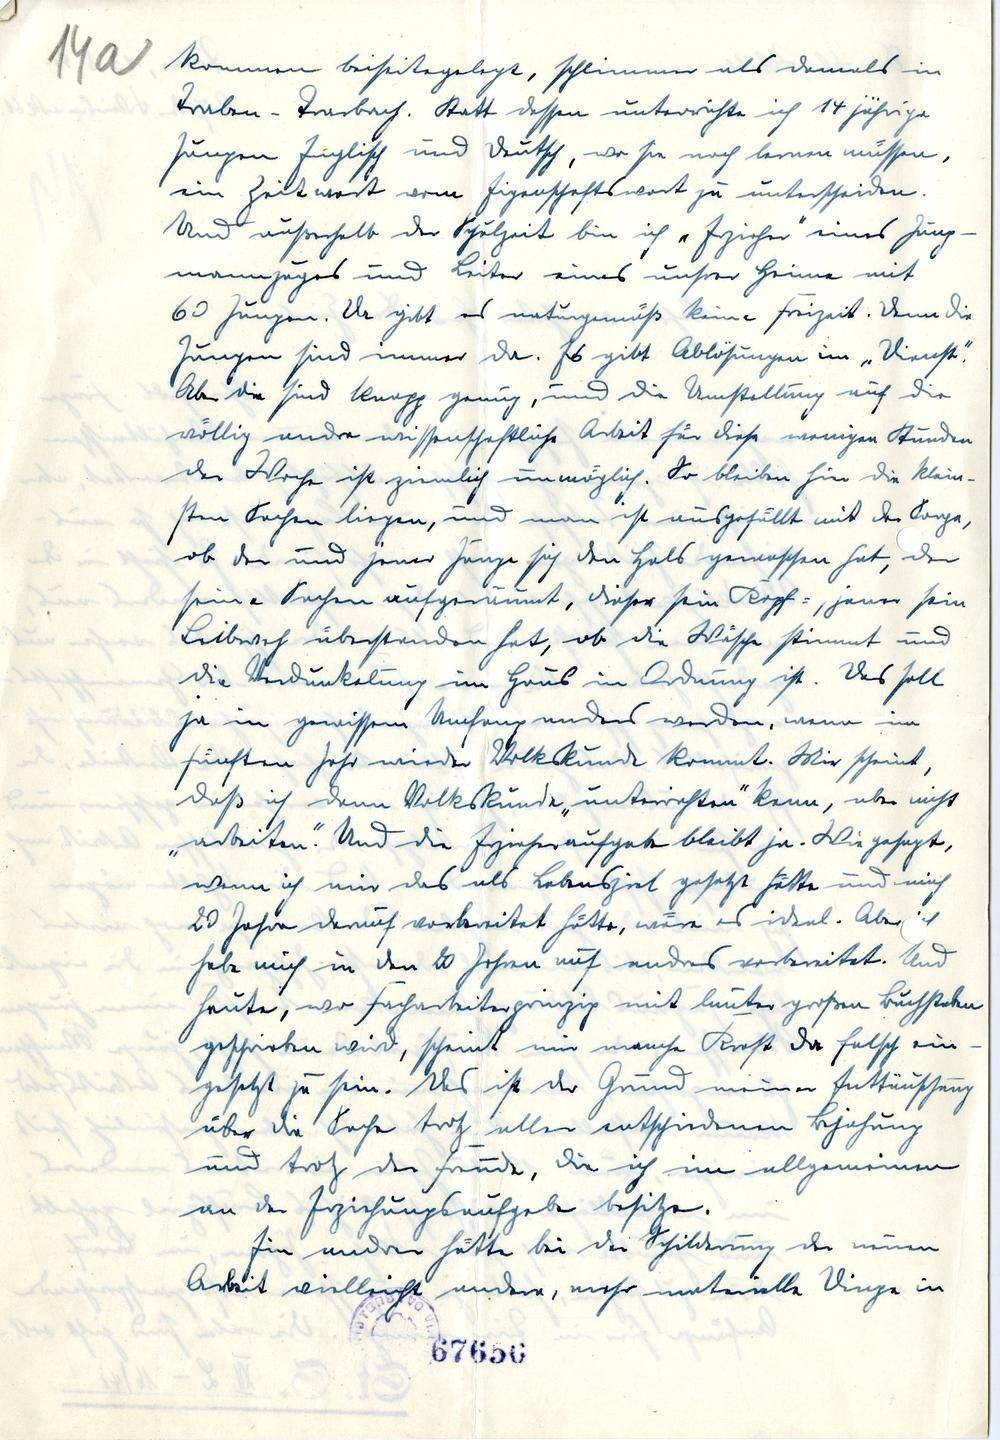 14a
kommen beiseitegelegt, schlimmer als damals in
Traben-Trarbach. Statt dessen unterrichte ich 14 jährige
Jungen Englisch und Deutsch, wo sie noch lernen müssen,
ein Zeitwort vom Eigenschaftswort zu unterscheiden.
Und außerhalb der Schulzeit bin ich „Erzieher“ eines Jung-
mannzuges und Leiter eines unsrer Heime mit
60 Jungen. Da gibt es naturgemäß keine Freizeit. Denn die
Jungen sind immer da. Es gibt Ablösungen im „Dienst“.
Aber die sind knapp genug, und die Umstellung auf die
völlig andre wissenschaftliche Arbeit für diese wenigen Stunden
der Woche ist ziemlich unmöglich. So bleiben hier die klein-
sten Sachen liegen, und man ist ausgefüllt mit der Sorge,
ob der und jener Junge sich den Hals gewaschen hat, der
seine Sachen aufgeräumt, dieser sein Kopf=, jener sein
Leibweh überstanden hat, ob die Wäsche stimmt und
die Verdunkelung im Haus in Ordnung ist. Das soll
ja in gewissem Umfang anders werden, wenn im
fünften Jahr wieder Volkskunde kommt. Mir scheint,
daß ich dann Volkskunde „unterrichten“ kann, aber nicht
„arbeiten“. Und die Erzieheraufgabe bleibt ja. Wie gesagt,
wenn ich mir das als Lebensziel gesetzt hätte und mich
20 Jahre darauf vorbereitet hätte, wäre es ideal. Aber ich
habe mich in den 20 Jahren auf andres vorbereitet. Und
heute, wo Facharbeiterprinzip mit lauter großen Buchstaben
geschrieben wird, scheint mir manche Kraft da falsch ein-
gesetzt zu sein. Das ist der Grund meiner Enttäuschung
über die Sache trotz aller entschiedenen Bejahung
und trotz der Freude, die ich im allgemeinen
an der Erziehungsaufgabe besitze.
Ein andrer hätte bei der Schilderung der neuen
Arbeit vielleicht andere, mehr materielle Dinge in
67656